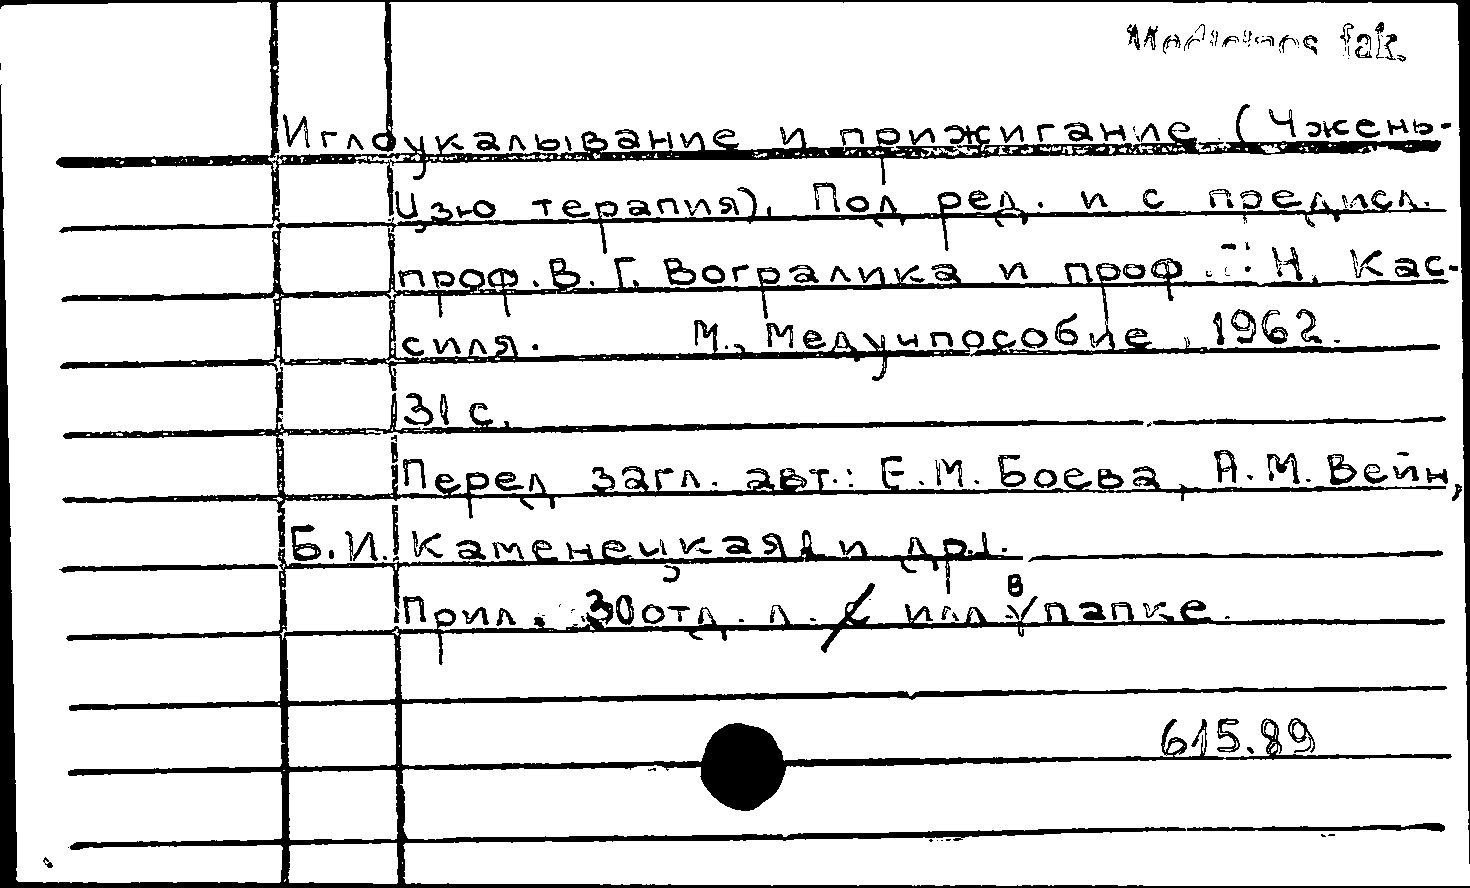 Medicīnas fak.
Иглоукалывание и прижигание (Чжень-
Цзю терапия). Под ред. и с предисл.
проф. В. Г. Вогралика и проф. Г. Н. Кас-
силя. М., Медучпособие, 1962.
31 с.
Перед загл. авт.: Е. М. Боева, А. М. Вейн,
Б. И. Каменецкая [и др.].
Прил. 30 отд. л. илл. в папке.
615.89